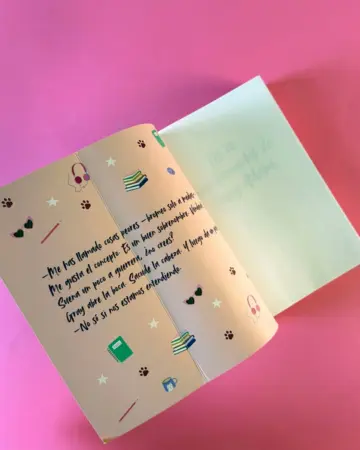 —Me has llamado cosas peores —bromeo solo a medias—.
Me gusta el concepto. Es un buen sobrenombre.
Suena un poco a guerrera, ¿no crees?
Gray abre la boca. Sacude la cabeza. Y luego
—No sé si nos estamos entendiendo.